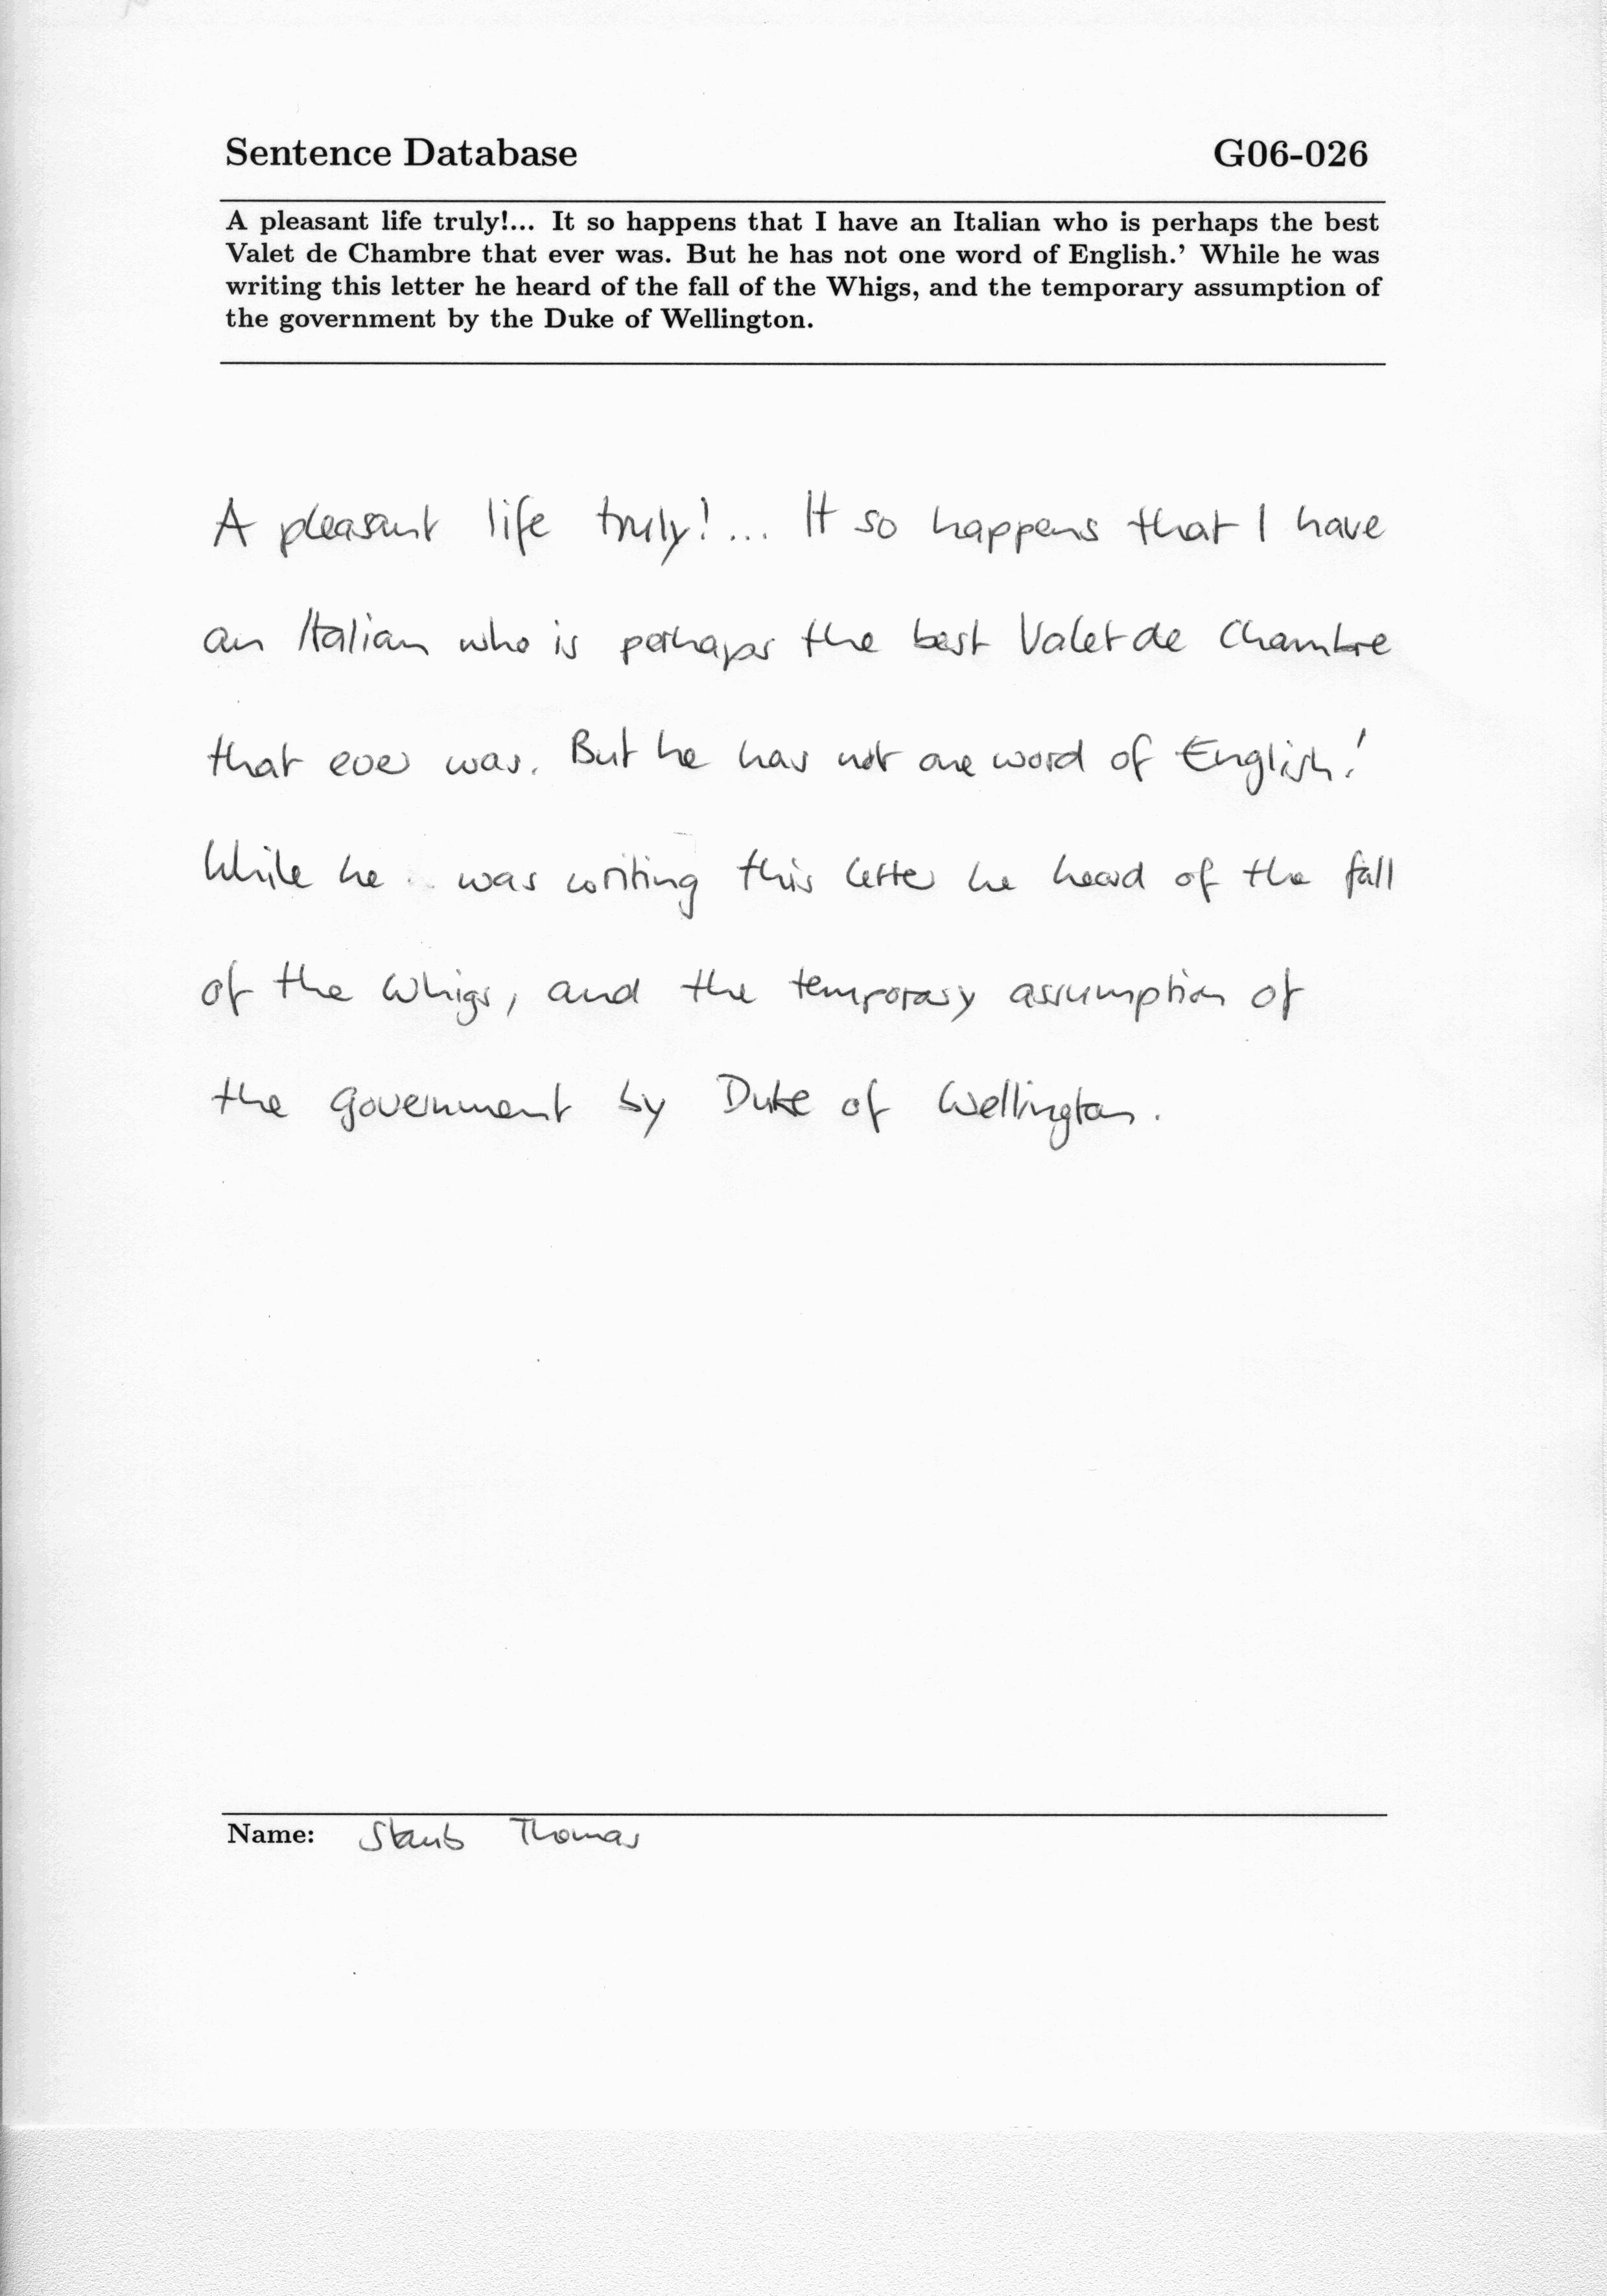 Sentence Database G06-026
A pleasant life truly!... It so happens that I have an Italian who is perhaps the best
Valet de Chambre that ever was. But he has not one word of English.' While he was
writing this letter he heard of the fall of the Whigs, and the temporary assumption of
the government by the Duke of Wellington.
A pleasant life truly!... It so happens that I have
an Italian who is perhaps the best Valet de Chambre
that ever was. But he has not one word of English.'
While he was writing this letter he heard of the fall
of the Whigs, and the temporary assumption of
the government by Duke of Wellington.
Name: Staub Thomas